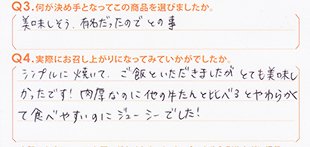 Q3.何が決め手となってこの商品を選びましたか。
美味しそう、有名だったのでとの事
Q4.実際にお召し上がりになってみていかがでしたか。
シンプルに焼いて、ご飯といただきましたがとても美味し
かったです!肉厚なのに他の牛たんと比べるとやわらかく
て食べやすいのにジューシーでした!